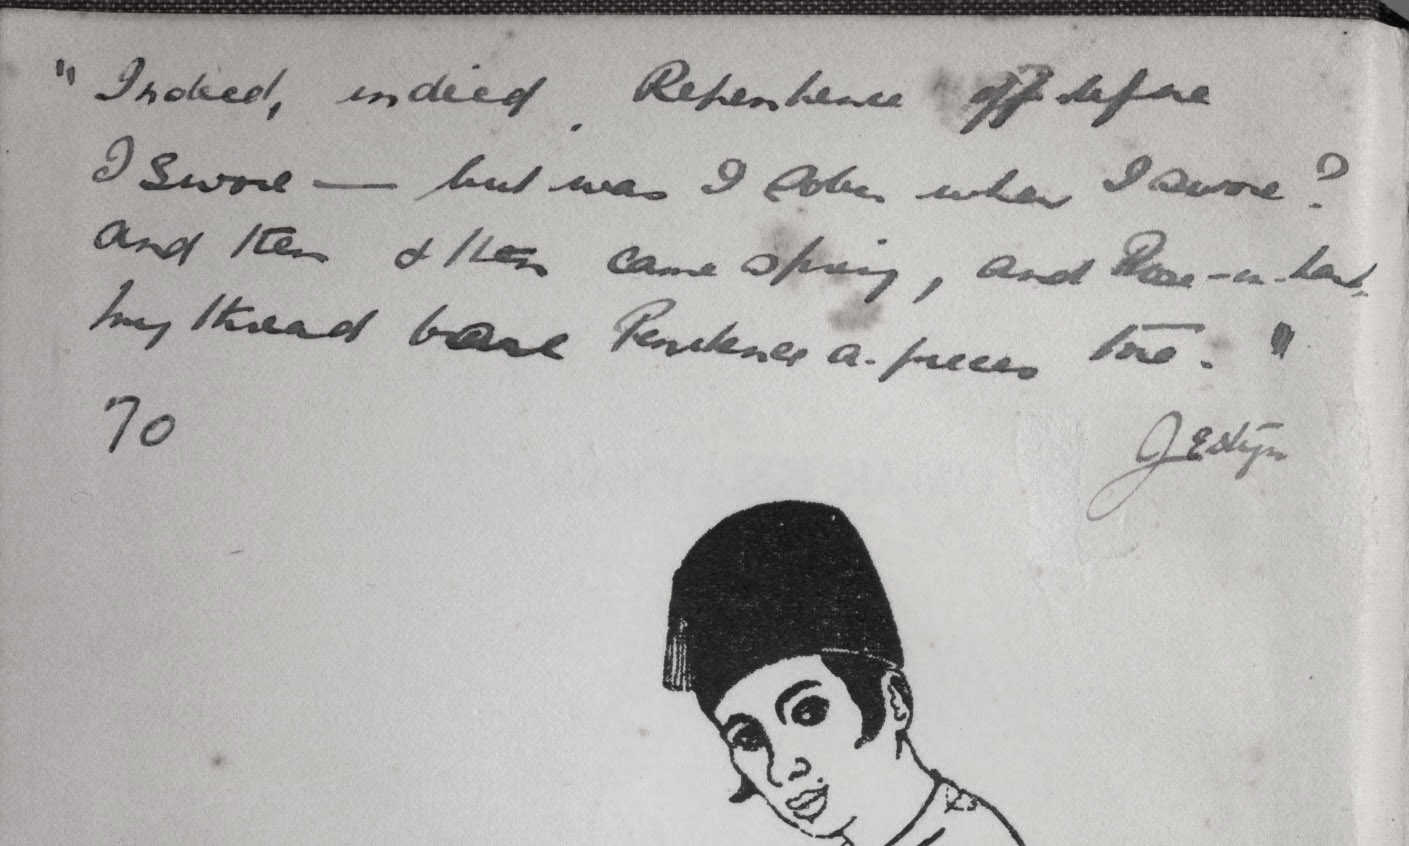 "Indeed, indeed. Repentance oft before
I Swore — but was I sober when I swore?
And then & then came spring, and Rose-in-hand.
my thread bare Penitence a-pieces tore."
70
JEstyn